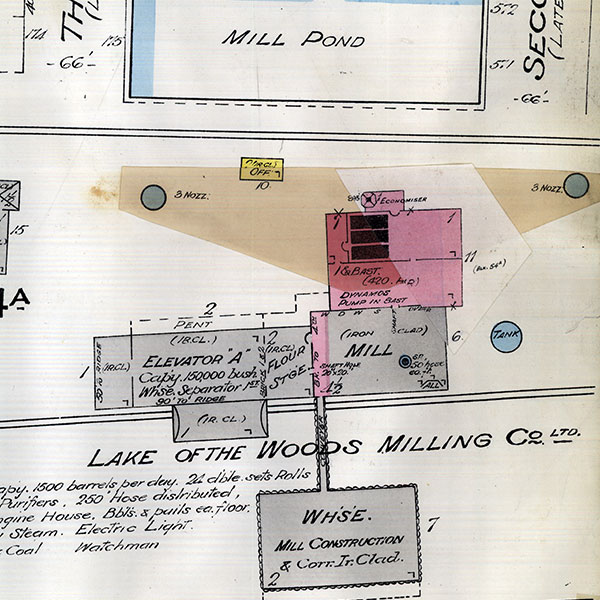 174
TH
(LATE
175
-66'-
MILL POND
572
571
SECO
(LATE
-66'-
(IR.CL)
OFF.
10.
3 NOZZ.
3 NOZZ.
ECONOMISER
1
1
15
11
1 & BAST.
(420. H.P.)
DYNAMOS
PUMP IN BAST
4A
2
PENT
(IR.CL.)
2
1
(IR.CL)
ELEVATOR "A"
Capy. 150,000 bush
Whse. Separator 1st
90' TO RIDGE
(IR.CL)
FLOUR
STGE.
(IRON CLAD)
MILL
6.
SHAFT
TANK
(IR. CL.)
LAKE OF THE WOODS MILLING CO. LTD.
apy. 1500 barrels per day. 24 dble. sets Rolls
Purifiers. 250' Hose distributed,
ngine House. Bbls. & pails ea. floor.
Steam. Electric Light.
Coal Watchman
WHSE.
MILL CONSTRUCTION
& Corr. Ir. Clad.
2
7